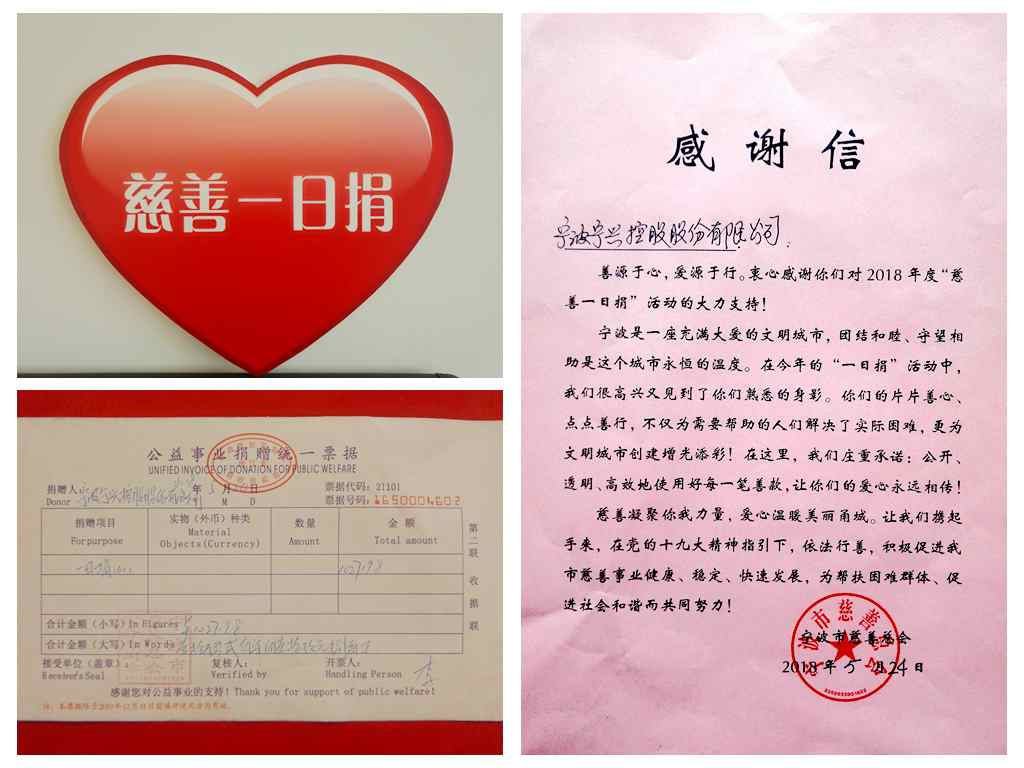 慈善一日捐
公益事业捐赠统一票据
UNIFIED INVOICE OF DONATION FOR PUBLIC WELFARE
捐赠人
Donor
年 5 月 日
Y M D
票据代码：27101
票据号码：1650004602
捐赠项目
For purpose
实物（外币）种类
Material
Objects(Currency)
数量
Amount
金 额
Total amount
第二联 收据联
一日捐
合计金额（小写）In Figures
合计金额（大写）In Words
接受单位（盖章）：
Receiver's Seal
复核人：
Verified by
开票人：
Handling Person
感谢您对公益事业的支持！Thank you for support of public welfare!
感谢信
宁波宁兴控股股份有限公司：
善源于心，爱源于行。衷心感谢你们对 2018 年度“慈
善一日捐”活动的大力支持！
宁波是一座充满大爱的文明城市，团结和睦、守望相
助是这个城市永恒的温度。在今年的“一日捐”活动中，
我们很高兴又见到了你们熟悉的身影。你们的片片善心、
点点善行，不仅为需要帮助的人们解决了实际困难，更为
文明城市创建增光添彩！在这里，我们庄重承诺：公开、
透明、高效地使用好每一笔善款，让你们的爱心永远相传！
慈善凝聚你我力量，爱心温暖美丽甬城。让我们携起
手来，在党的十九大精神指引下，依法行善，积极促进我
市慈善事业健康、稳定、快速发展，为帮扶困难群体、促
进社会和谐而共同努力！
宁波市慈善总会
2018 年 5 月 24 日